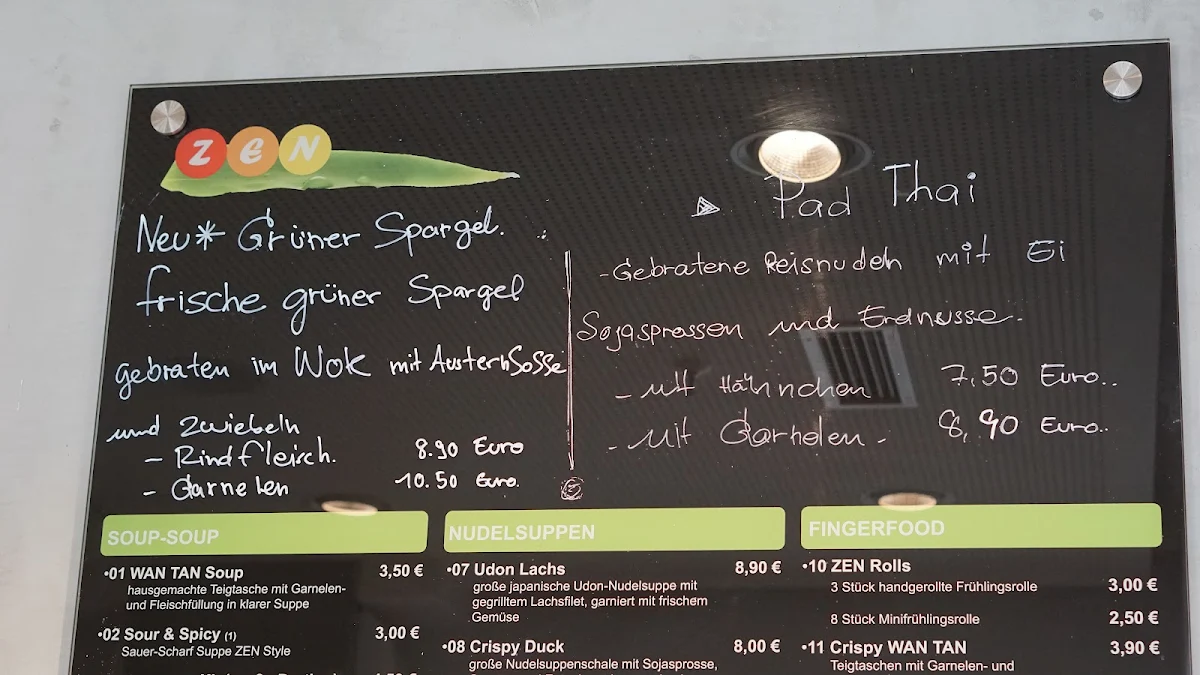 ZEN
Neu* Grüner Spargel.
frische grüner Spargel
gebraten im Wok mit AusternSosse
und Zwiebeln
- Rindfleisch. 8.90 Euro
- Garnelen 10.50 Euro.
Pad Thai
- Gebratene Reisnudeln mit Ei
Sojasprossen und Erdnusse.
- mit Hähnchen 7,50 Euro..
- Mit Garnelen - 8,90 Euro..
SOUP-SOUP
•01 WAN TAN Soup 3,50 €
hausgemachte Teigtasche mit Garnelen-
und Fleischfüllung in klarer Suppe
•02 Sour & Spicy (1) 3,00 €
Sauer-Scharf Suppe ZEN Style
NUDELSUPPEN
•07 Udon Lachs 8,90 €
große japanische Udon-Nudelsuppe mit
gegrilltem Lachsfilet, garniert mit frischem
Gemüse
•08 Crispy Duck 8,00 €
große Nudelsuppenschale mit Sojasprosse,
FINGERFOOD
•10 ZEN Rolls
3 Stück handgerollte Frühlingsrolle 3,00 €
8 Stück Minifrühlingsrolle 2,50 €
•11 Crispy WAN TAN 3,90 €
Teigtaschen mit Garnelen- und